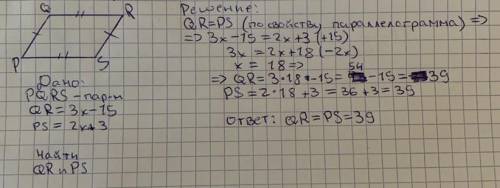 Q
R
P
S
Дано:
PQRS - пар-м
QR = 3x-15
PS = 2x+3
Найти
QR и PS
Решение:
QR=PS (по свойству параллелограмма) =>
=> 3x-15 = 2x+3 (+15)
3x = 2x+18 (-2x)
x = 18 =>
54
=> QR = 3·18-15 = -15 = 39
PS = 2·18+3 = 36+3 = 39
Ответ: QR=PS=39